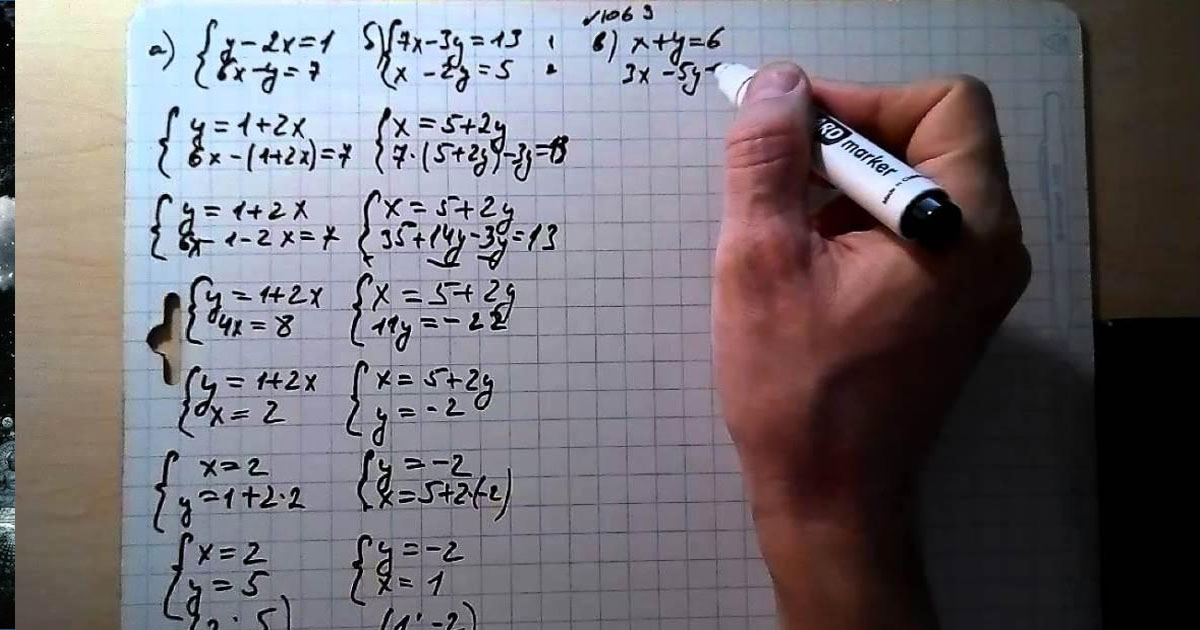 √1069
а) { y - 2x = 1
6x - y = 7
б) { 7x - 3y = 13 1
x - 2y = 5 2
в) x + y = 6
3x - 5y
{ y = 1 + 2x
6x - (1 + 2x) = 7
{ x = 5 + 2y
7 · (5 + 2y) - 3y = 13
{ y = 1 + 2x
6x - 1 - 2x = 7
{ x = 5 + 2y
35 + 14y - 3y = 13
{ y = 1 + 2x
4x = 8
{ x = 5 + 2y
11y = - 22
{ y = 1 + 2x
x = 2
{ x = 5 + 2y
y = -2
{ x = 2
y = 1 + 2 · 2
{ y = -2
x = 5 + 2·(-2)
{ x = 2
y = 5
{ y = -2
x = 1
(2; 5)
(1; -2)
marker